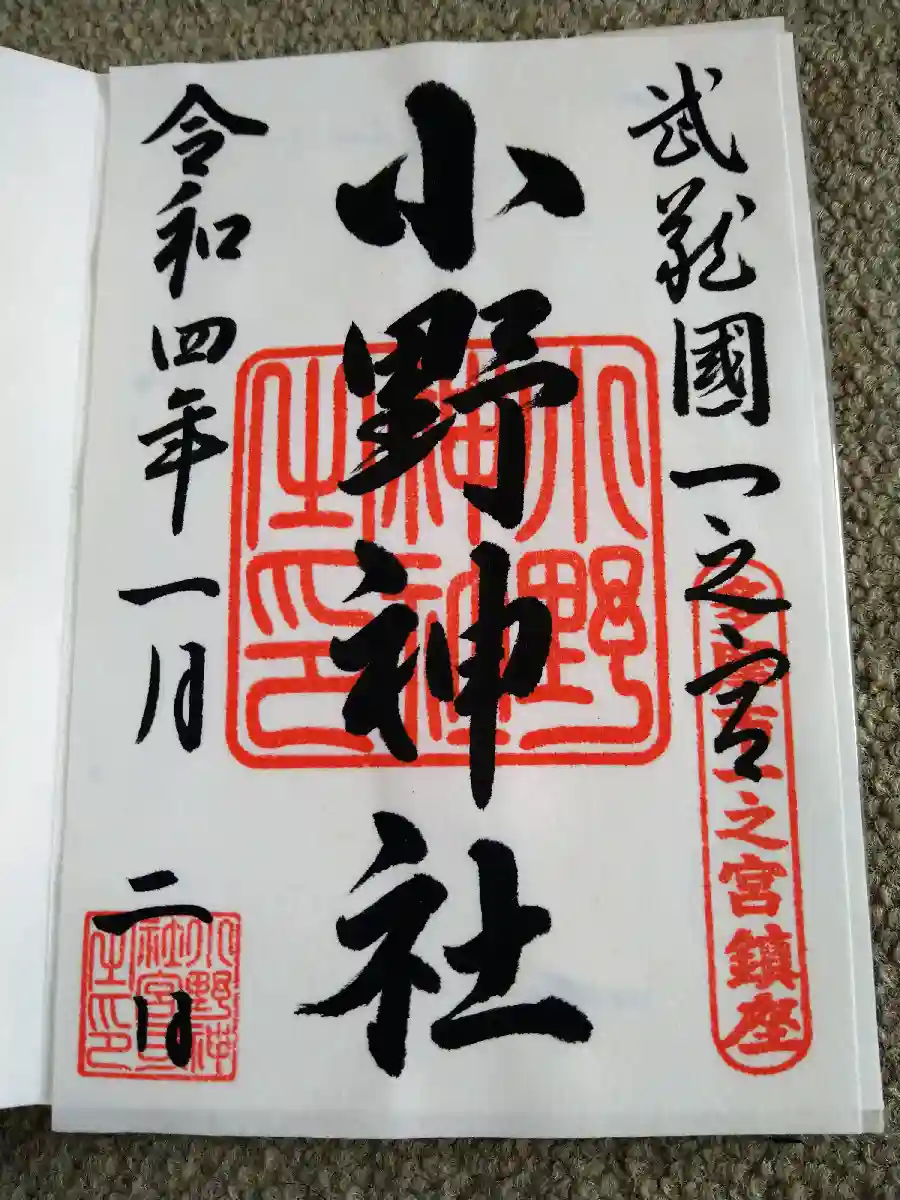 武蔵國一之宮
一之宮鎮座
小野神社
小野神社之印
令和四年一月 二日
小野神社宮司之印